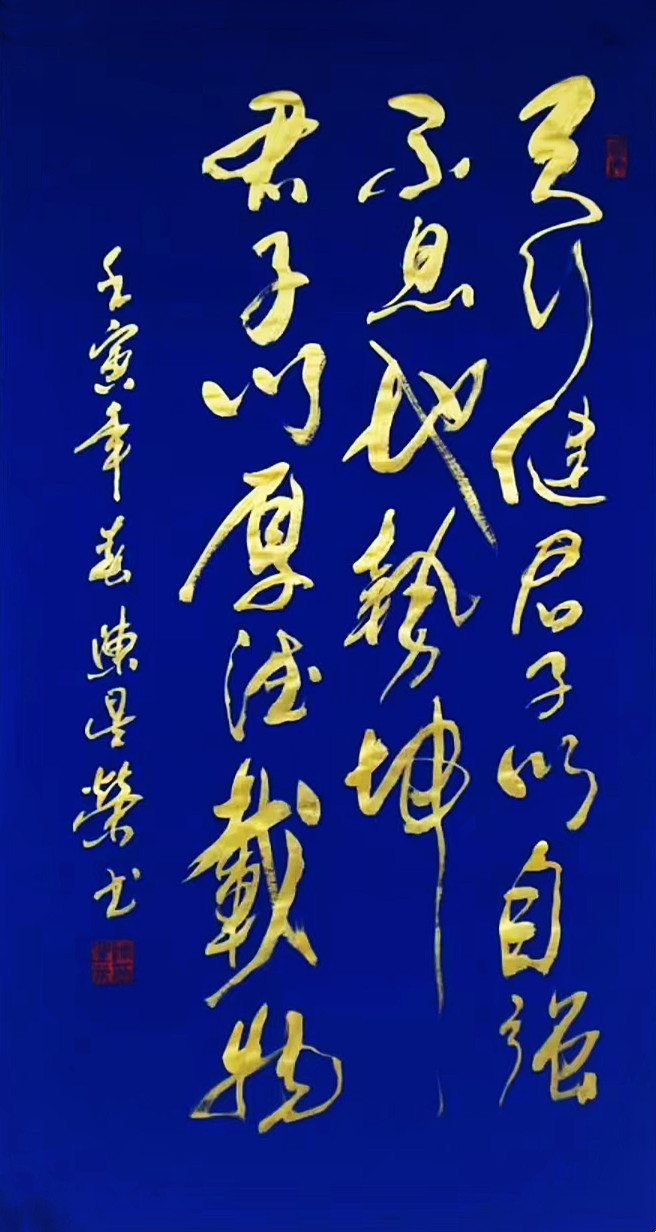 天行健君子以自强
不息地势坤
君子以厚德载物
壬寅年春陈星荣书